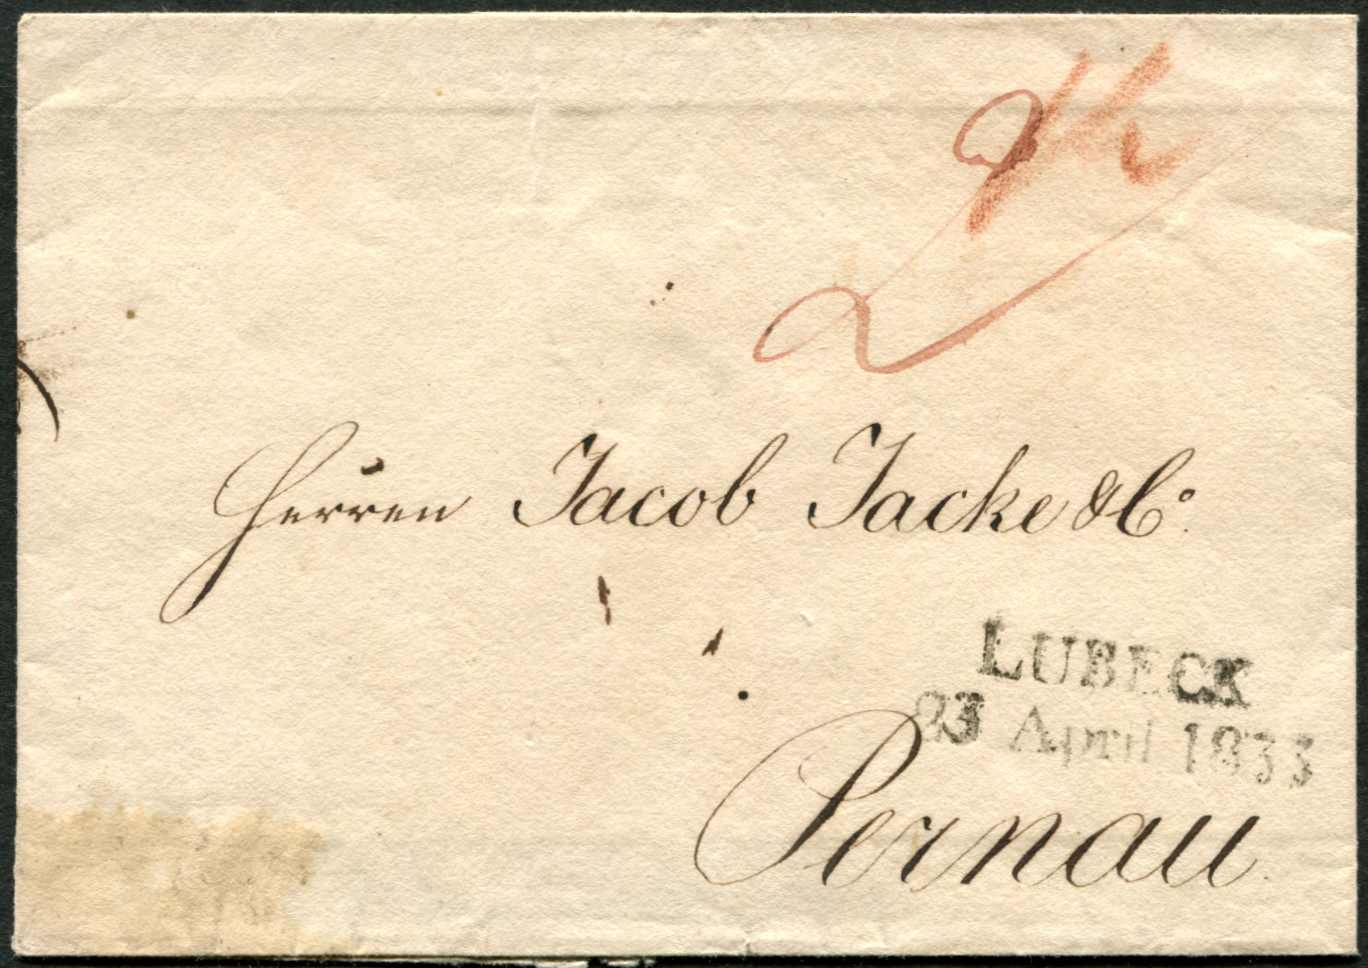 Herren Jacob Jacke & Co.
LUBECK
23 April 1833
Pernau